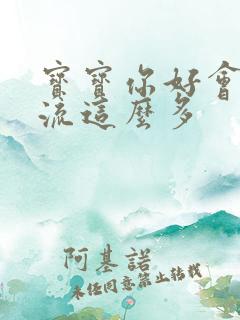 寶寶你好會
流這麼多
阿基諾
未經同意禁止轉載